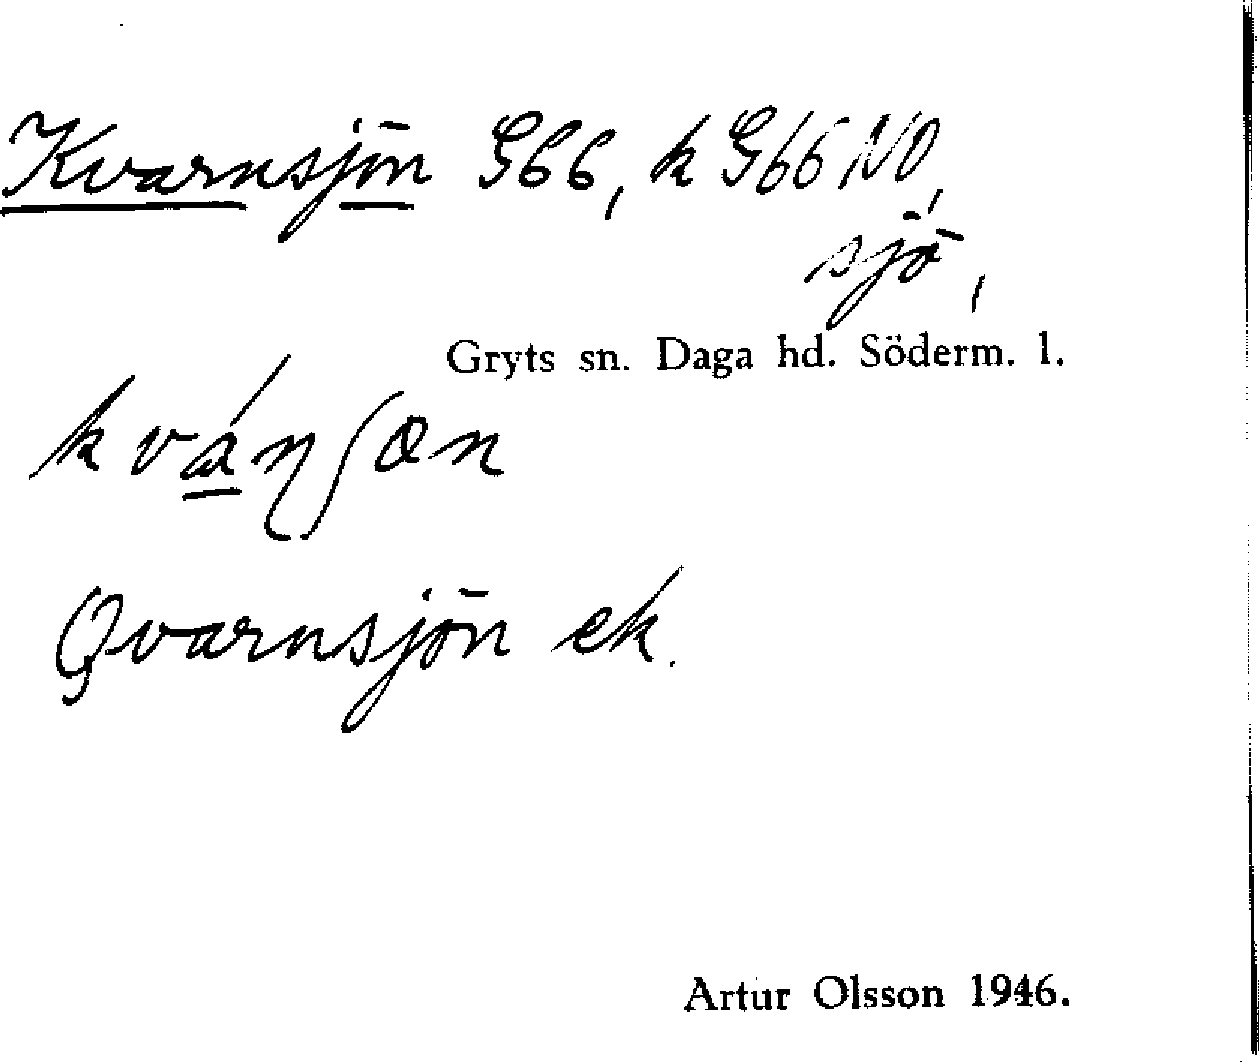 Kvarnsjön G66, k G66 NO,
sjö,
Gryts sn. Daga hd. Söderm. l.
Qvarnsjön ek.
Artur Olsson 1946.